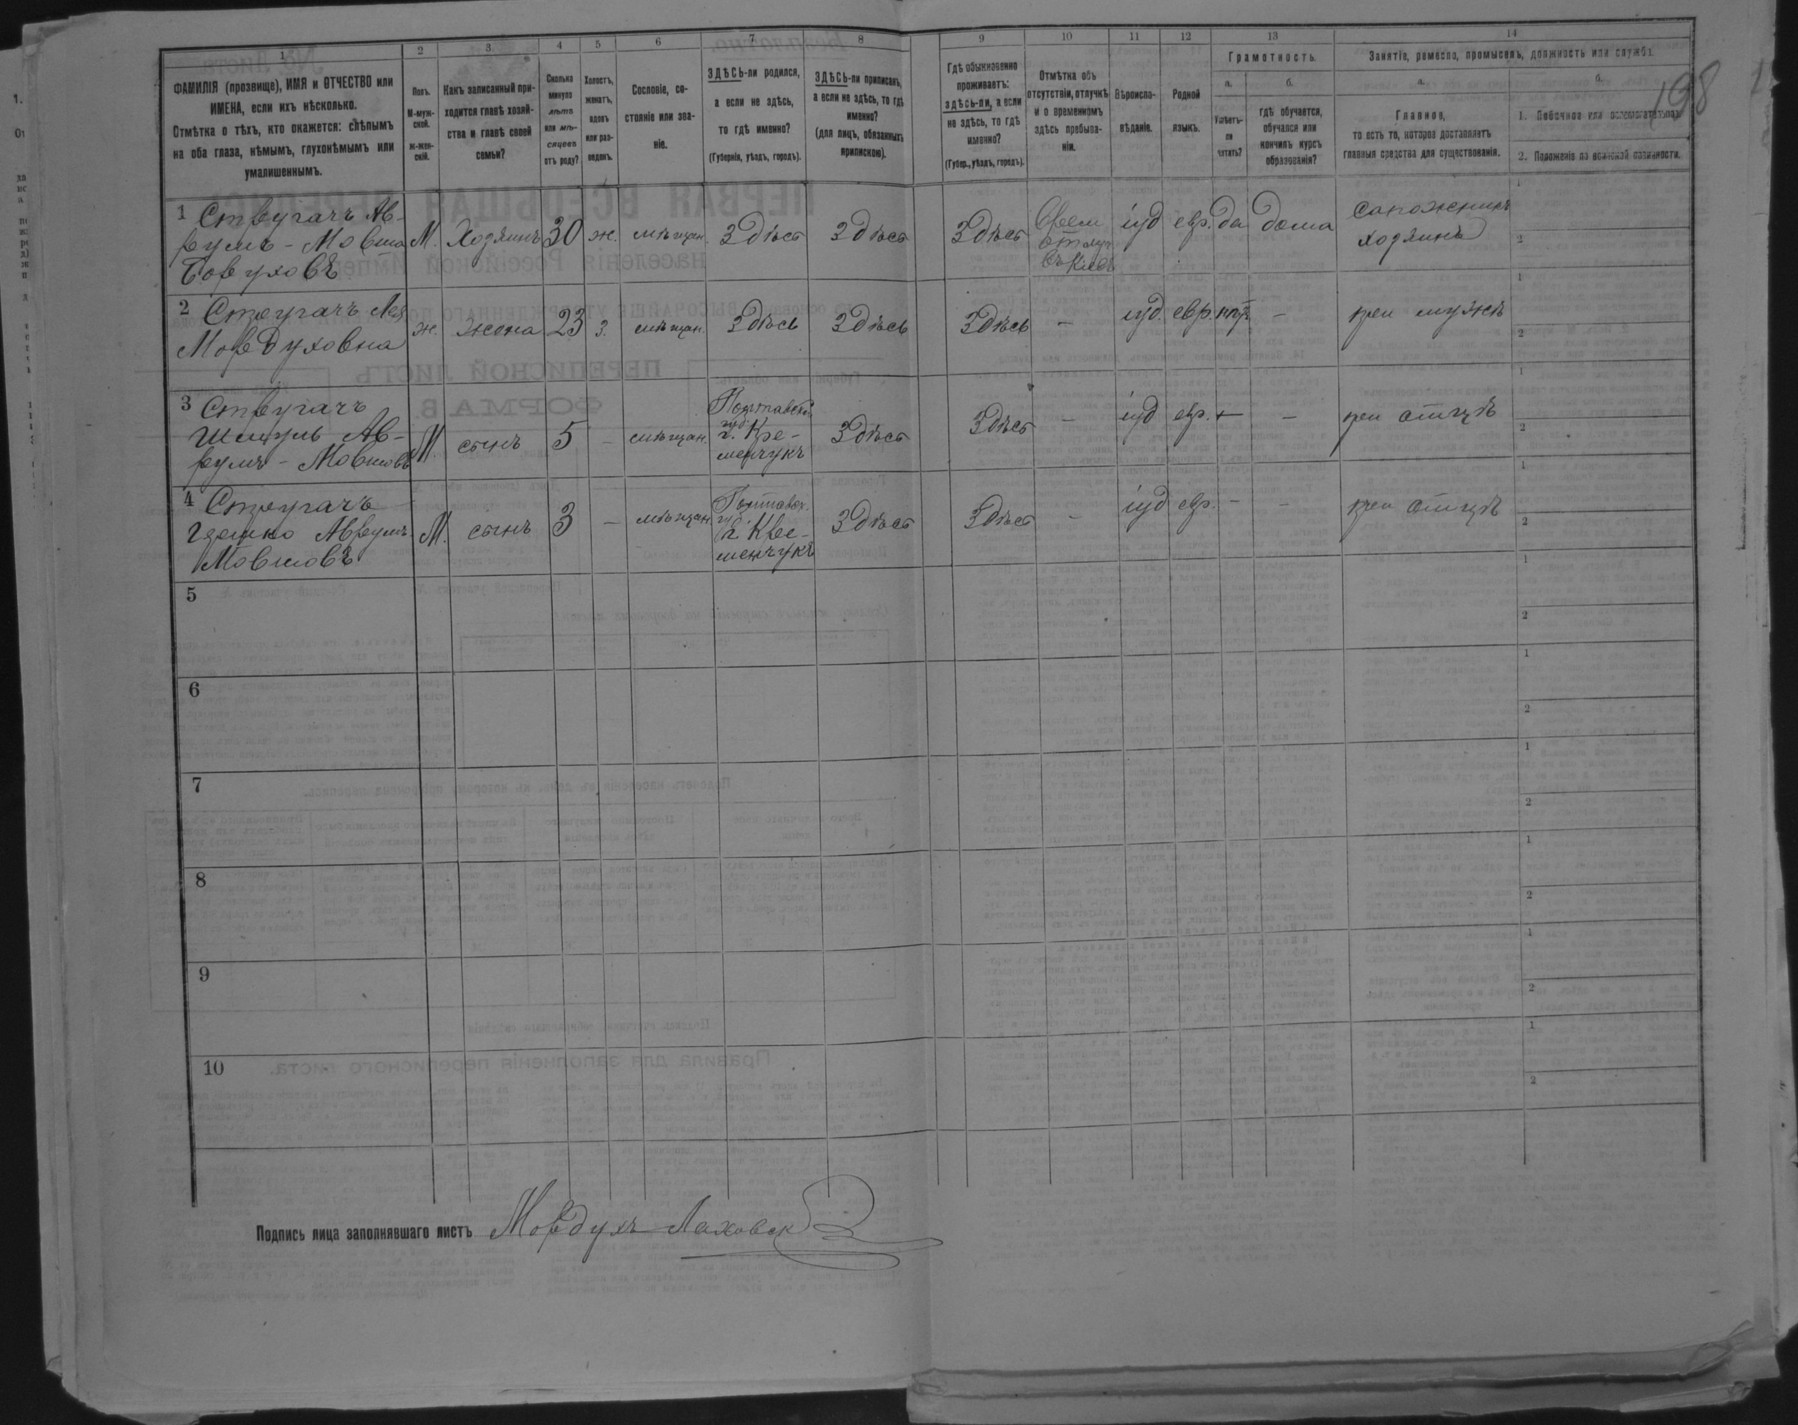 1 2 3 4 5 6 7 8 9 10 11 12 13 14
ФАМИЛІЯ (прозвище), ИМЯ и ОТЧЕСТВО или
ИМЕНА, если ихъ нѣсколько.
Отмѣтка о тѣхъ, кто окажется: слѣпымъ
на оба глаза, нѣмымъ, глухонѣмымъ или
умалишеннымъ.
Полъ.
М-муж-
ской.
Ж-жен-
скій.
Какъ записанный при-
ходится главѣ хозяй-
ства и главѣ своей
семьи?
Сколько
минуло
лѣтъ
или мѣ-
сяцевъ
отъ роду?
Холостъ,
женатъ,
вдовъ
или раз-
веденъ.
Сословіе, со-
стояніе или зва-
ніе.
ЗДѢСЬ-ли родился,
а если не здѣсь,
то гдѣ именно?
(Губернія, уѣздъ, городъ).
ЗДѢСЬ-ли приписанъ,
а если не здѣсь, то гдѣ
именно?
(для лицъ, обязанныхъ
припискою).
Гдѣ обыкновенно
проживаетъ:
здѣсь-ли, а если
не здѣсь, то гдѣ
именно?
(Губер., уѣздъ, городъ).
Отмѣтка объ
отсутствіи, отлучкѣ
и о временномъ
здѣсь пребыва-
ніи.
Вѣроиспо-
вѣданіе.
Родной
языкъ.
Грамотность.
а.
Умѣетъ-
ли
читать?
б.
гдѣ обучается,
обучался или
кончилъ курсъ
образованія?
Занятіе, ремесло, промыселъ, должность или служба.
а.
Главное,
то есть то, которое доставляетъ
главныя средства для существованія.
б.
1. Побочное или вспомогательное.
2. Положеніе по воинской повинности.
198
1 Стругачъ Ав-
румъ - Мовша
Боруховъ
М. Хозяинъ 30 ж. мѣщан. Здѣсь Здѣсь Здѣсь
въ Кіевъ
іуд евр. да дома
сапожникъ
хозяинъ
2 Стругачъ Лея
Мордуховна
ж. жена 23 з. мѣщан. Здѣсь Здѣсь Здѣсь – іуд. евр. нѣт – при мужѣ
3 Стругачъ
Шмуль Ав-
румъ - Мовшовъ
М. сынъ 5 – мѣщан.
Полтавской
губ.
г. Кре-
менчукъ
Здѣсь Здѣсь – іуд евр. – – при отцѣ
4 Стругачъ
Гершко Аврумъ
Мовшовъ
М. сынъ 3 – мѣщан.
Полтавск.
губ.
г. Кре-
менчукъ
Здѣсь Здѣсь – іуд евр. – – при отцѣ
5
6
7
8
9
10
Подпись лица заполнявшаго листъ Мордухъ Ляховск